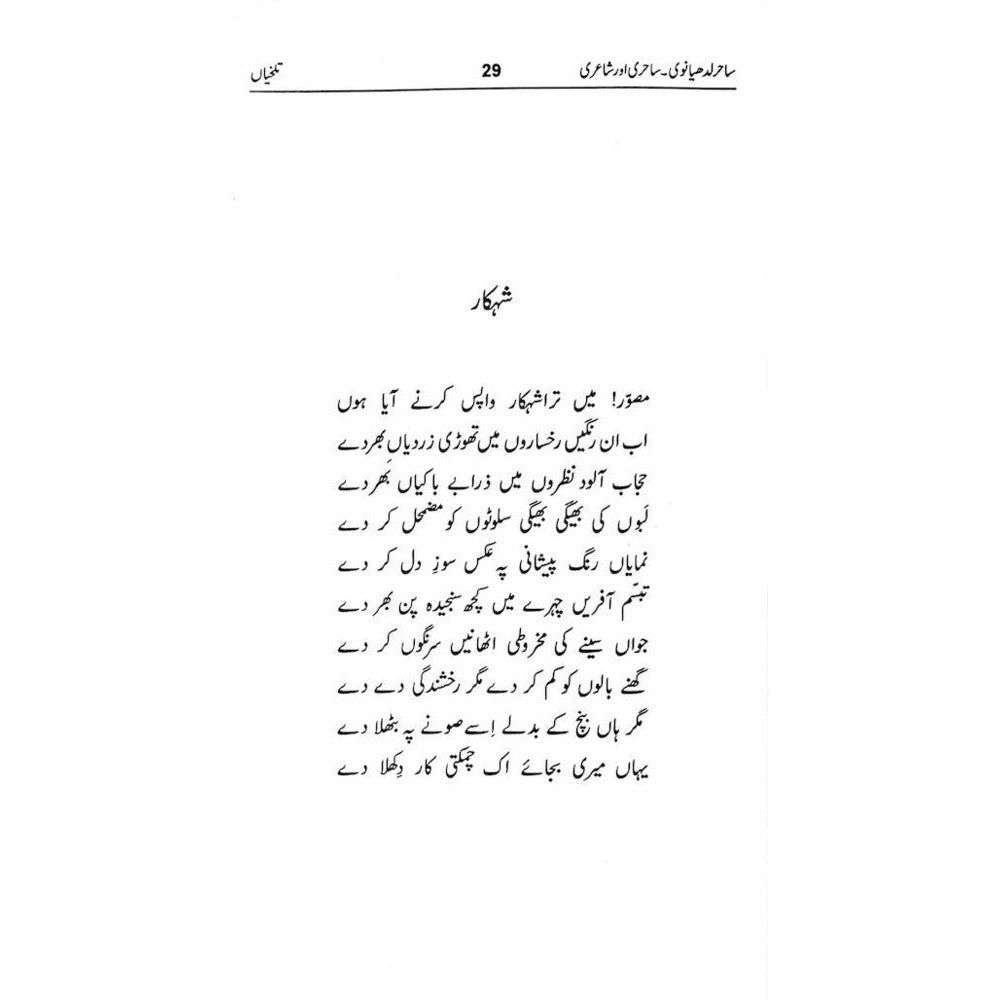 ساحر لدھیانوی۔ ساحری اور شاعری 29 تلخیاں
شہکار
مصوّر! میں ترا شہکار واپس کرنے آیا ہوں
اب ان رنگیں رخساروں میں تھوڑی زردیاں بھر دے
حجاب آلود نظروں میں ذرا بے باکیاں بھر دے
لبوں کی بھیگی بھیگی سلوٹوں کو مضمحل کر دے
نمایاں رنگ پیشانی پہ عکس سوزِ دل کر دے
تبسّم آفریں چہرے میں کچھ سنجیدہ پن بھر دے
جواں سینے کی مخروطی اٹھانیں سرنگوں کر دے
گھنے بالوں کو کم کر دے مگر رخشندگی دے دے
مگر ہاں بنچ کے بدلے اِسے صوفے پہ بٹھلا دے
یہاں میری بجائے اک چمکتی کار دِکھلا دے